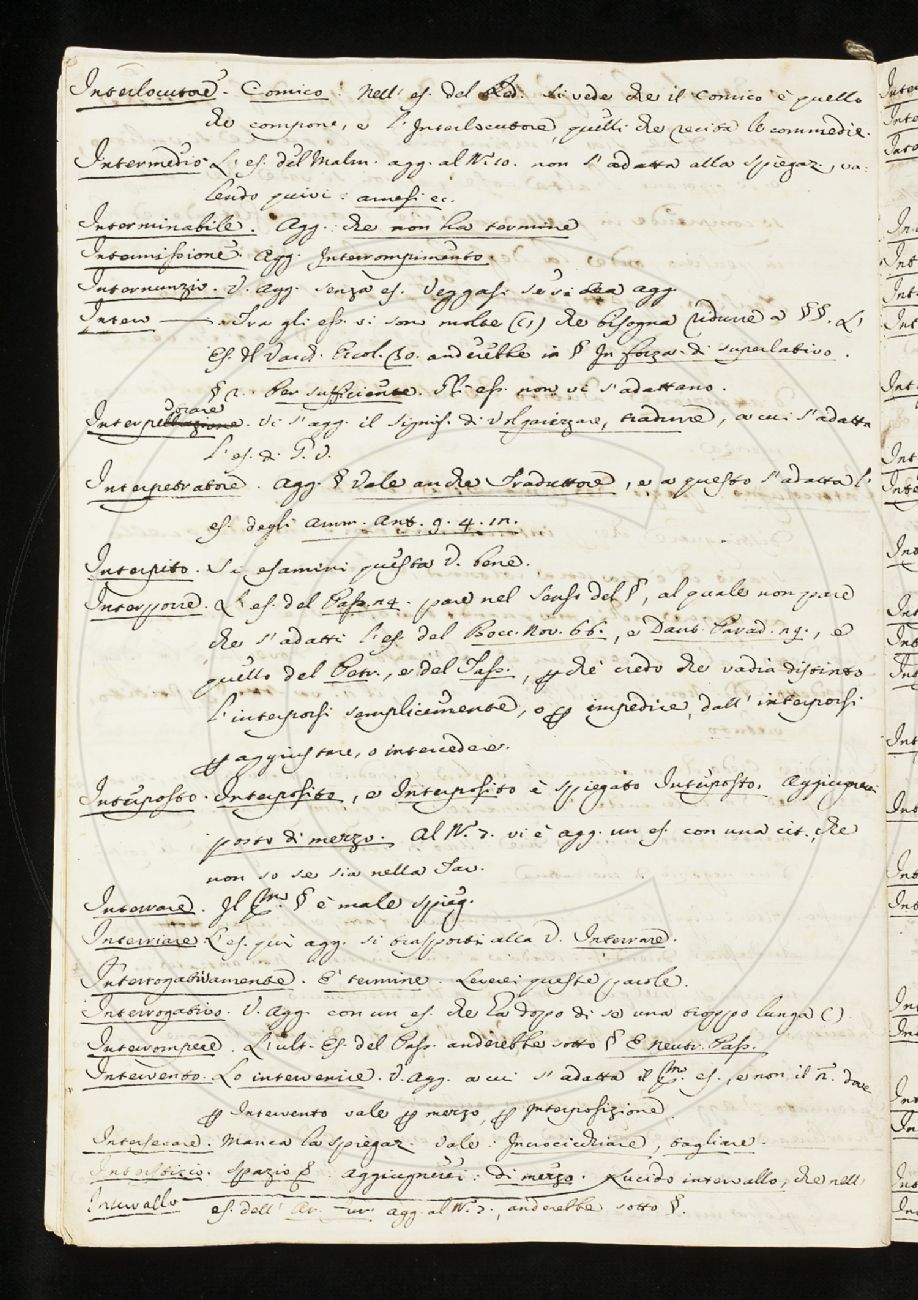 Interlocutore. Comico: Nell' es. del Red. si vede che il Comico è quello
che compone, e l'Interlocutore, quelli che recita le commedie.
Intermedio. L'es. del Malm. agg. al N.º 10. non s'adatta alla spiegaz., va-
lendo quivi: arnesi ec.
Interminabile. Agg.: che non ha termine
Intermissione. Agg. Interrompimento.
Internunzio. V. agg. senza es. Veggasi se vi sia agg.
Intero —. Tra gli ess. vi son molte () che bisogna ridurre a §§. L'
Es. di Varch. Ercol. 30. anderebbe in § In forza di superlativo.
§ 2. Per sufficiente. Gli ess. non vi s'adattano.
Interpetrare. Vi s'agg. il signif. di Volgarizzare, tradurre, a cui s'adatta
l'es. di G. V.
Interpetratore. Agg. § Vale anche Traduttore, e a questo s'adatta l'
es. degli Amm. Ant. 9. 4. 12.
Interpito. Si esamini questa V. bene.
Interporre. L'es. del Pass. 24. pare nel senso del §, al quale non pare
che s'adatti l'es. del Bocc. Nov. 66., e Dant. Parad. 29., e
quello del Petr., e del Tass., perchè credo che vadia distinto
l'interporsi semplicemente, o per impedire, dall'interporsi
per aggiustare, o intercedere.
Interposto. Interposita, e Interposito è spiegato Interposto. Aggiugnerei
posto di mezzo. Al N.º 2. vi è agg. un es. con una cit., che
non so se sia nella Tav.
Interrare. Il § è male spieg.
Interriare L'es. qui agg. si trasporti alla V. Interrare.
Interrogativamente. È termine. Leverei queste parole.
Interrogativo. V. Agg. con un es. che ha dopo di se una troppo lunga ().
Interrompere. L'ult. Es. del Pass. anderebbe sotto § E neutr. Pass.
Intervento. Lo intervenire. V. Agg. a cui s'adatta il es., e non il dove
per Intervento vale per mezzo, per Interposizione.
Intersecare. Manca la spiegaz. vale: Incrocicchiare, tagliare.
Interstizio. Spazio §. Aggiugnerei: di mezzo.
Intervallo Lucido intervallo, che nell'
es. dell' agg. al N.º 2., anderebbe sotto §.